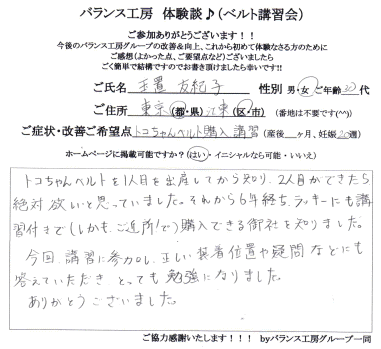 バランス工房 体験談♪(ベルト講習会)
ご参加ありがとうございます!!
今後のバランス工房グループの改善&向上、これから初めて体験なさる方のために
ご感想(よかった点、ご要望点など)ございましたら
ごく簡単で結構ですのでお書き頂けましたら幸いです!!
ご氏名 玉置 友紀子 性別 男・女 ご年齢30代
ご住所 東京(都・県)江東(区・市) (番地は不要です(^^))
ご症状・改善ご希望点 トコちゃんベルト購入 講習 (産後 ヶ月、妊娠20週)
ホームページに掲載可能ですか?(はい・イニシャルなら可能・いいえ)
トコちゃんベルトを1人目を出産してから知り、2人目ができたら
絶対欲いと思っていました。それから6年経ち、ラッキーにも講
習付きで(しかも、ご近所!で)購入できる御社を知りました。
今回、講習に参加し、正しい装着位置や疑問などにも
答えていただき とっても勉強になりました。
ありがとうございました。
ご協力感謝いたします!!! byバランス工房グループ一同